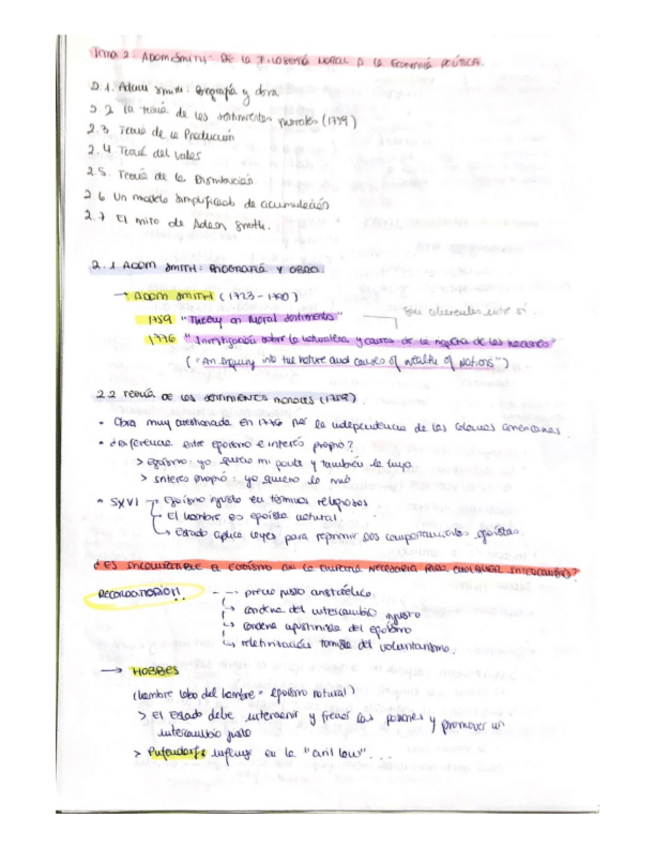 Tema 2: ADAM SMITH: DE LA FILOSOFÍA MORAL A LA ECONOMÍA POLÍTICA.
2.1. Adam Smith: Biografía y obra
2.2 La teoría de los sentimientos morales (1759)
2.3 Teoría de la Producción
2.4. Teoría del valor
2.5. Teoría de la Distribución.
2.6 Un modelo simplificado de acumulación
2.7 El mito de Adam Smith.
2.1 ADAM SMITH: BIOGRAFÍA Y OBRA
→ ADAM SMITH (1723-1790)
1759 "Theory on Moral Sentiments" Son coherentes entre sí.
1776 "Investigación sobre la naturaleza y causas de la riqueza de las naciones"
("An enquiry into the nature and causes of wealth of Nations")
2.2 TEORÍA DE LOS SENTIMIENTOS MORALES (1759).
• Obra muy cuestionada en 1776 por la independencia de las colonias americanas.
• ¿Diferencia entre egoísmo e interés propio?
> Egoísmo: yo quiero mi parte y también la tuya
> Interés propio: yo quiero lo mío
• SXVI → Egoísmo injusto en términos religiosos.
El hombre es egoísta natural.
↳ Estado aplica leyes para reprimir sus comportamientos egoístas.
¿ES INCOMPATIBLE EL EGOÍSMO CON LA EMPATÍA NECESARIA PARA CUALQUIER INTERCAMBIO?
RECORDATORIO!! --→ precio justo aristotélico.
↳ condena del intercambio injusto
↳ condena agustiniana del egoísmo
↳ relativización tomista del voluntarismo.
→ HOBBES
(hombre lobo del hombre = egoísmo natural)
> El Estado debe intervenir y frenar las pasiones y promover un
intercambio justo
> Pufendorf: influye en la "civil law"...